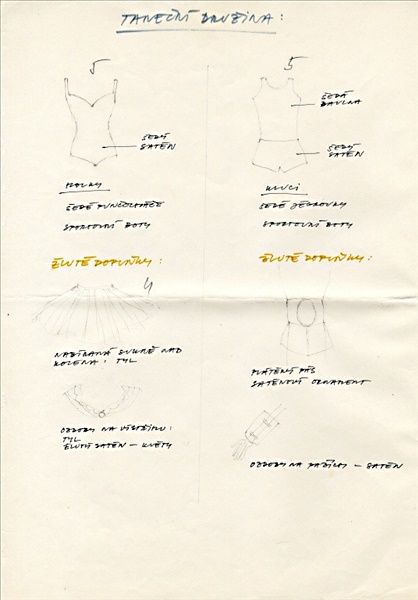 TANEČNÍ DRUŽINA:
5
ŠEDÝ
SATÉN
HOLKY
ŠEDÉ PUNČOCHÁČE
SPORTOVNÍ BOTY
ŽLUTÉ DOPLŇKY:
4
NABÍRANÁ SUKNĚ NAD
KOLENA: TYL
OZDOBY NA VÝSTŘIHU:
TYL
ŽLUTÝ SATÉN – KVĚTY
5
ŠEDÁ
BAVLNA
ŠEDÝ
SATÉN
KLUCI
ŠEDÉ
SPORTOVNÍ BOTY
ŽLUTÉ DOPLŇKY:
PLÁTĚNÝ PÁS
SATÉNOVÝ ORNAMENT
OZDOBY NA PAŽÍCH – SATÉN